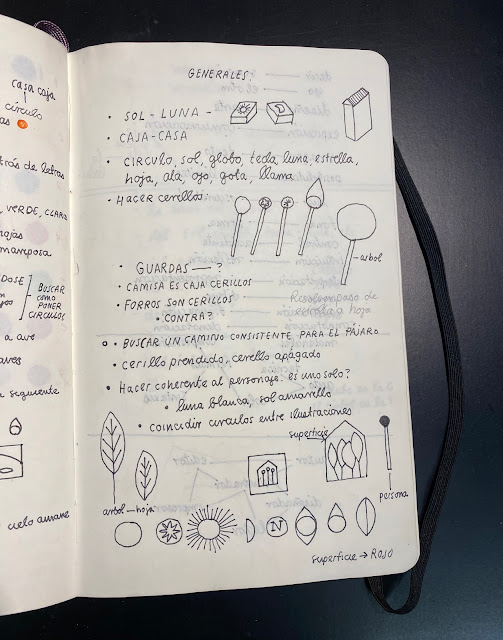 casa caja
círculo
GENERALES:
• SOL - LUNA -
CAJA-CASA
• CIRCULO, sol, globo, tecla, luna, estrella,
hoja, ala, ojo, gota, llama
• HACER cerillos:
árbol
• GUARDAS — ?
• CAMISA ES CAJA CERILLOS
• FORROS SON CERILLOS
• CONTRA?
• BUSCAR UN CAMINO CONSISTENTE PARA EL PÁJARO
• cerillo prendido, cerillo apagado
• Hacer coherente al personaje: es uno solo?
• luna blanca, sol amarillo
• coincidir circulos entre ilustraciones
superficie
arbol — hoja
persona
superficie → ROJO
trás de letras
VERDE, CLARA
mariposa
BUSCAR
COMO
PONER
CIRCULOS
a ave
aves
a siguiente